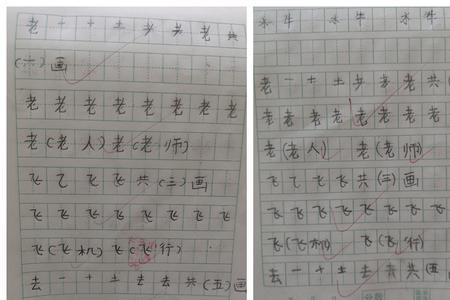 老 一 十 土 耂 耂 老 共
(六)画
老 老 老 老 老 老 老 老
老(老人) 老(老师)
飞 乙 飞 飞 共(三)画
飞 飞 飞 飞 飞 飞 飞 飞
飞(飞机) 飞(飞行)
去 一 十 土 去 去 共(五)画
水 牛 水 牛 水 牛
老 一 十 土 耂 耂 老 共(
老 老 老 老 老 老 老 老
老(老人) 老(老师)
飞 乙 飞 飞 共(三)画
飞 飞 飞 飞 飞 飞 飞 飞
飞(飞机) 飞(飞行)
去 一 十 土 去 去 共(五)画